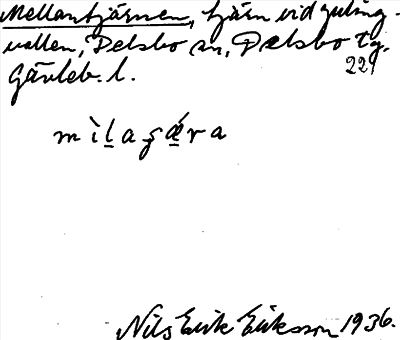 Mellantjärnen, tjärn vid Guling-
vallen, Delsbo sn, Delsbo tg,
Gävleb. l.
221
mìlagǽra
Nils Erik Eriksson 1936.